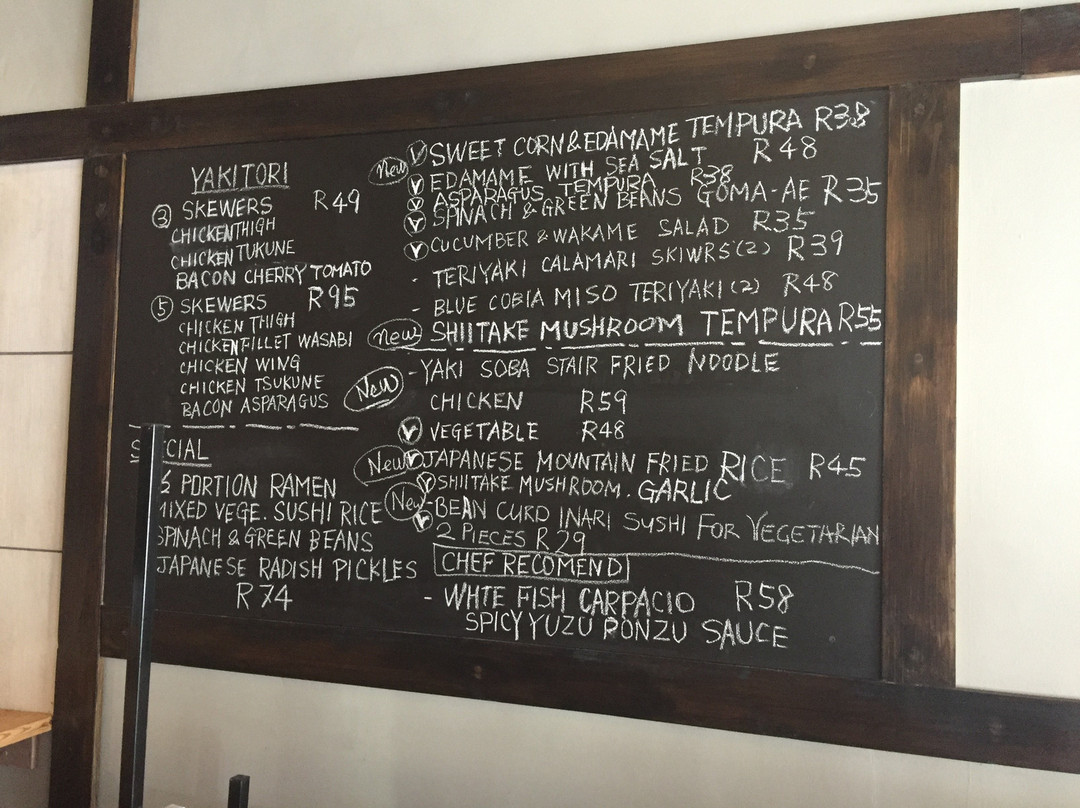 YAKITORI
③ SKEWERS R49
CHICKEN THIGH
CHICKEN TUKUNE
BACON CHERRY TOMATO
⑤ SKEWERS R95
CHICKEN THIGH
CHICKEN FILLET WASABI
CHICKEN WING
CHICKEN TSUKUNE
BACON ASPARAGUS
S CIAL
½ PORTION RAMEN
MIXED VEGE. SUSHI RICE
SPINACH & GREEN BEANS
JAPANESE RADISH PICKLES
R74
New V SWEET CORN & EDAMAME TEMPURA R38
V EDAMAME WITH SEA SALT R48
V ASPARAGUS TEMPURA R38
V SPINACH & GREEN BEANS GOMA-AE R35
V CUCUMBER & WAKAME SALAD R35
- TERIYAKI CALAMARI SKIWRS (2) R39
- BLUE COBIA MISO TERIYAKI (2) R48
New SHIITAKE MUSHROOM TEMPURA R55
New - YAKI SOBA STAIR FRIED NOODLE
CHICKEN R59
V VEGETABLE R48
New V JAPANESE MOUNTAIN FRIED RICE R45
V SHIITAKE MUSHROOM. GARLIC
New V BEAN CURD INARI SUSHI FOR VEGETARIAN
2 PIECES R29
CHEF RECOMEND
- WHTE FISH CARPACIO R58
SPICY YUZU PONZU SAUCE